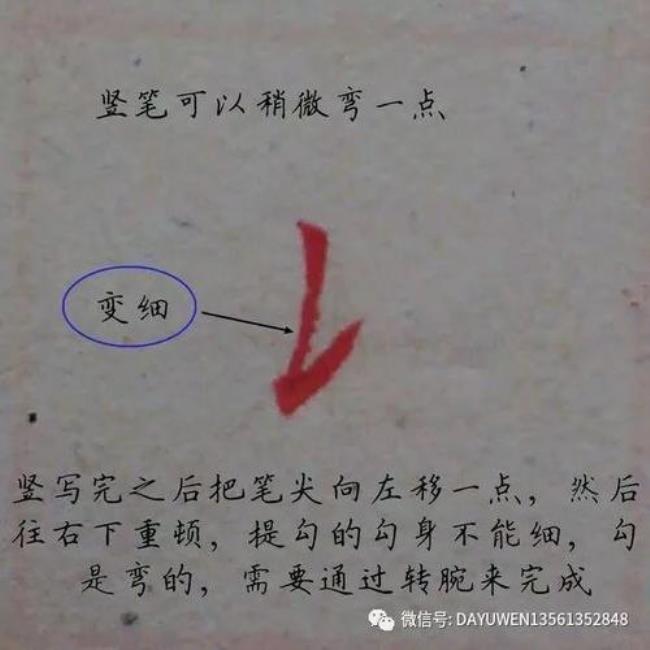 竖笔可以稍微弯一点
变细
竖写完之后把笔尖向左移一点，然后
往右下重顿，提勾的勾身不能细，勾
是弯的，需要通过转腕来完成
微信号: DAYUWEN13561352848